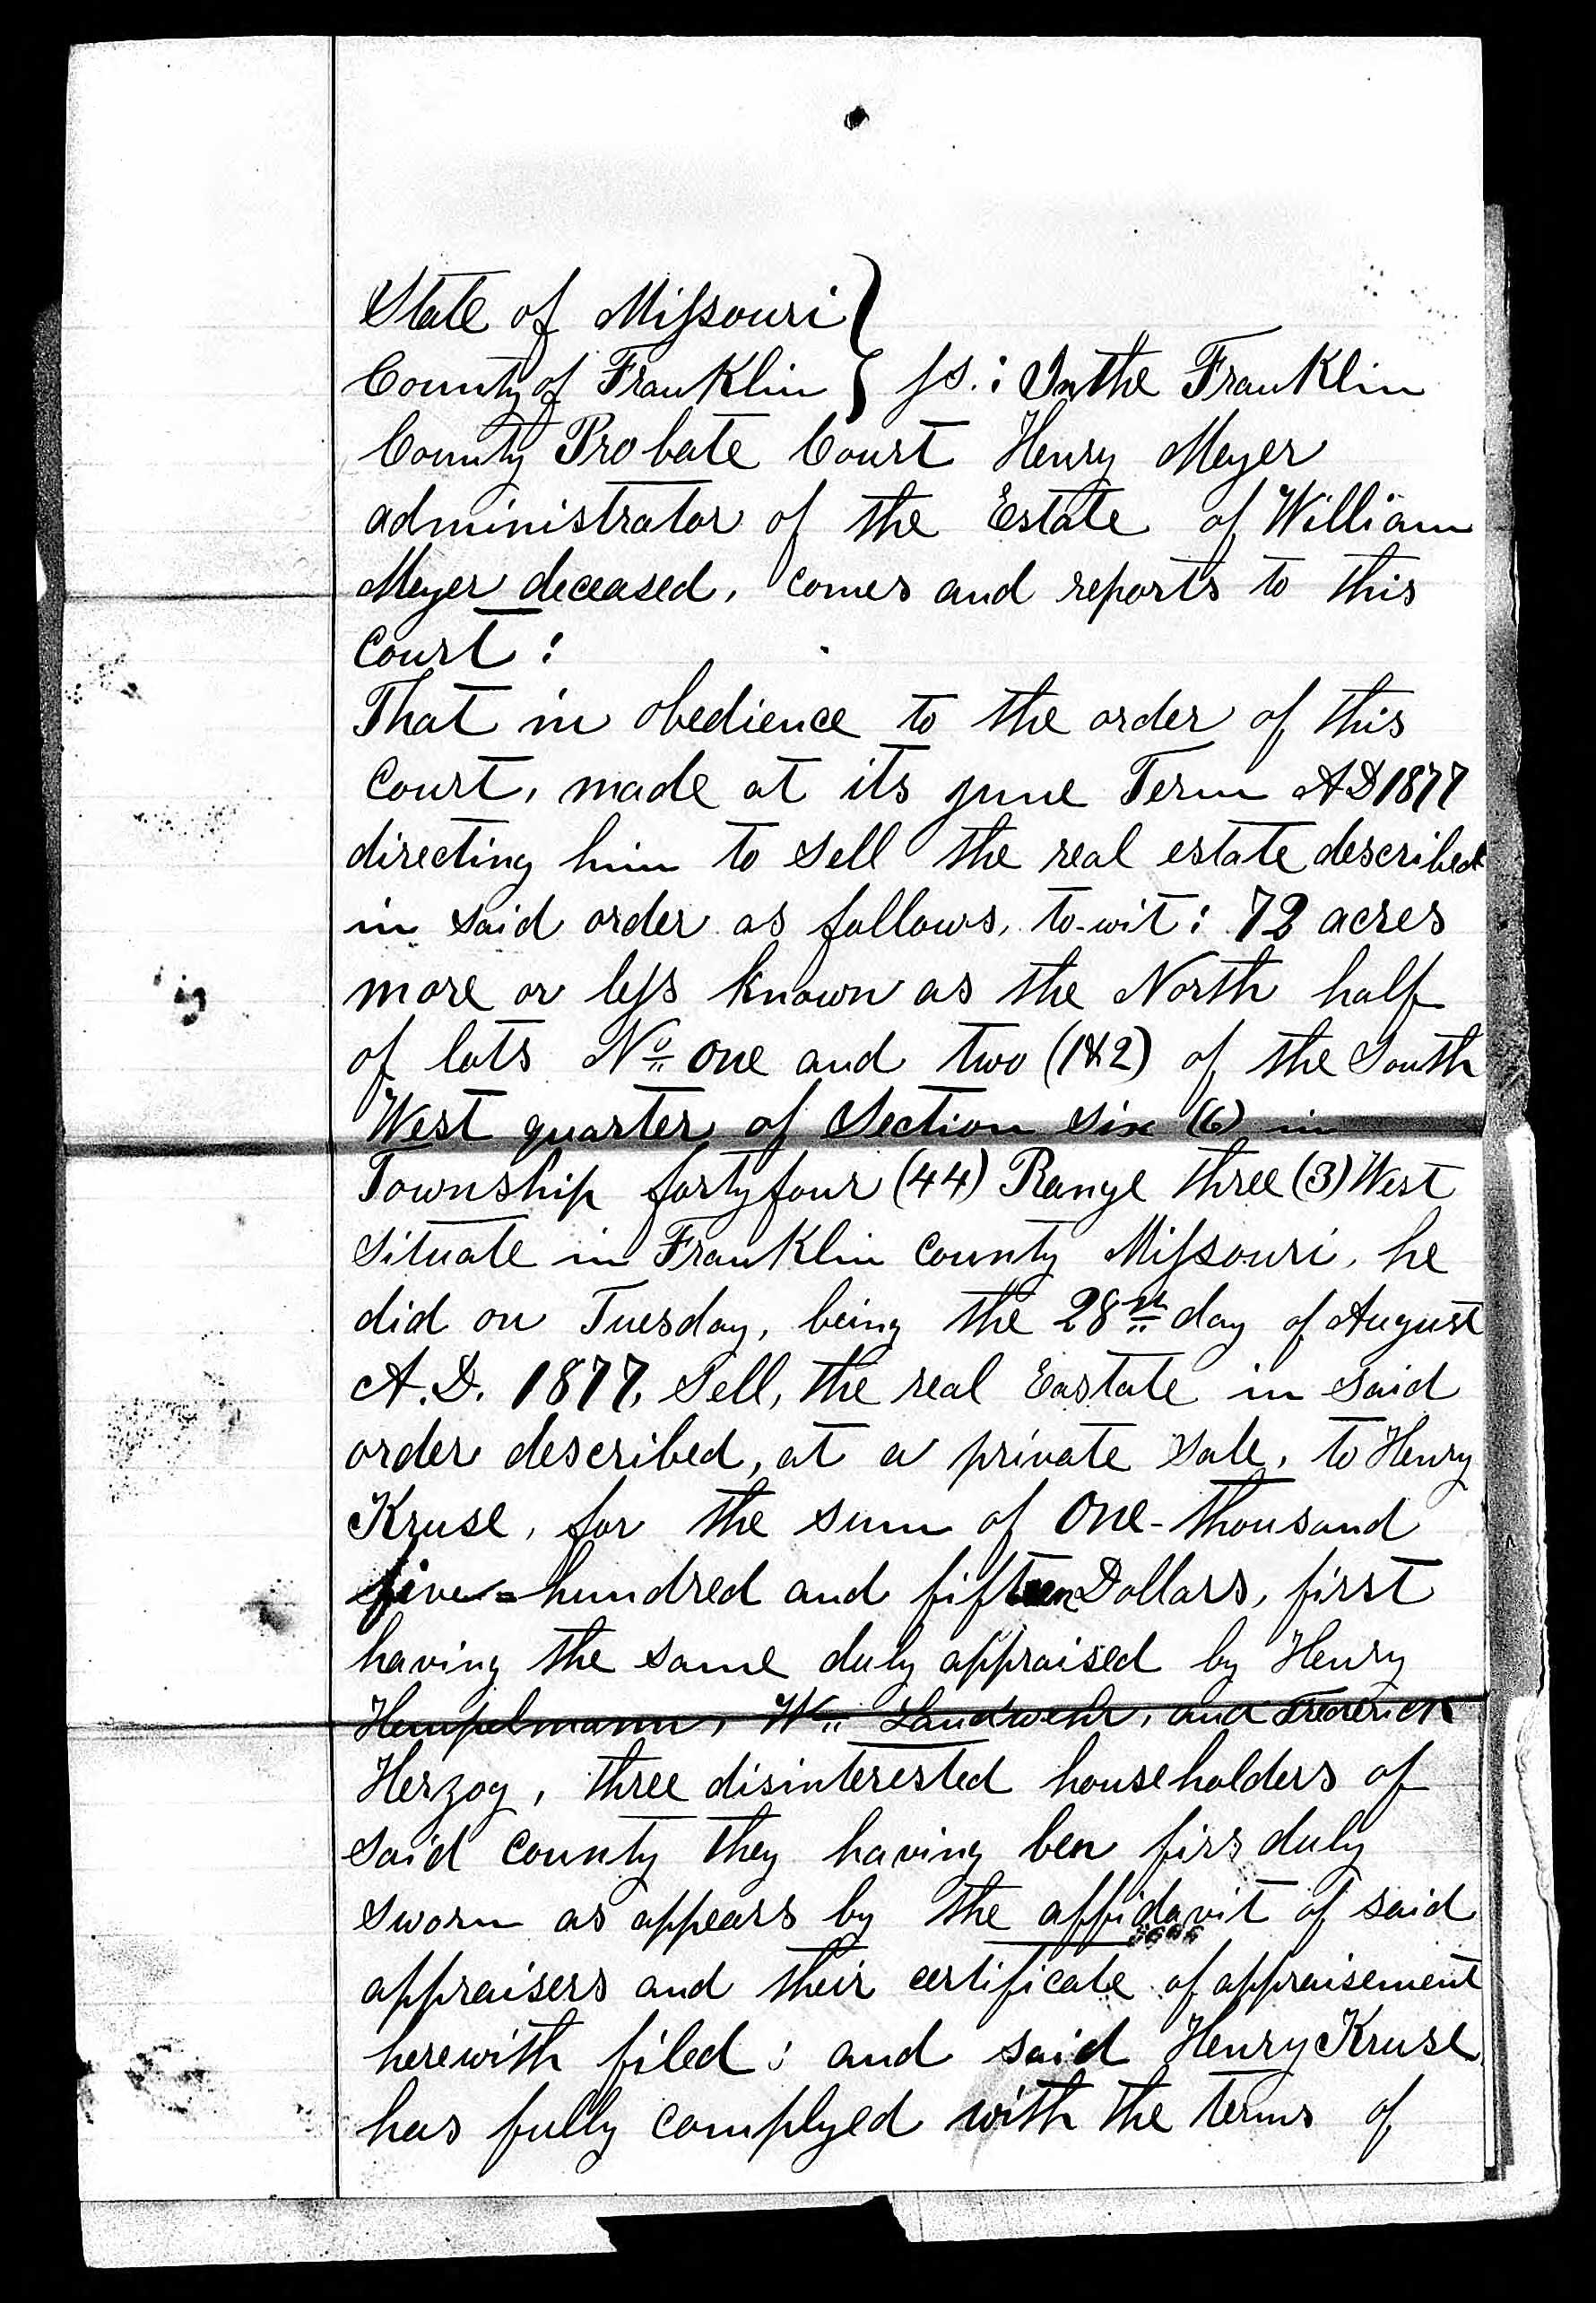 State of Missouri }
County of Franklin } ss.: In the Franklin
County Probate Court Henry Meyer
administrator of the Estate of William
Meyer deceased, comes and reports to this
Court:
That in obedience to the order of this
Court, made at its june Term AD 1877
directing him to sell the real estate described
in said order as follows, to-wit: 72 acres
more or less known as the North half
of lots No. one and two (1&2) of the South
West quarter of Section six (6) in
Township forty four (44) Range three (3) West
situate in Franklin County Missouri, he
did on Tuesday, being the 28th day of August
A.D. 1877, Sell, the real Eastate in said
order described, at a private sale, to Henry
Kruse, for the sum of One-thousand
five-hundred and fifteen Dollars, first
having the same duly appraised by Henry
Hempelmann, Wm. Landwehr, and Frederick
Herzog, three disinterested householders of
said County they having ben firs duly
sworn as appears by the affidavit of said
appraisers and their certificate of appraisement
herewith filed; and said Henry Kruse
has fully complyed with the terms of